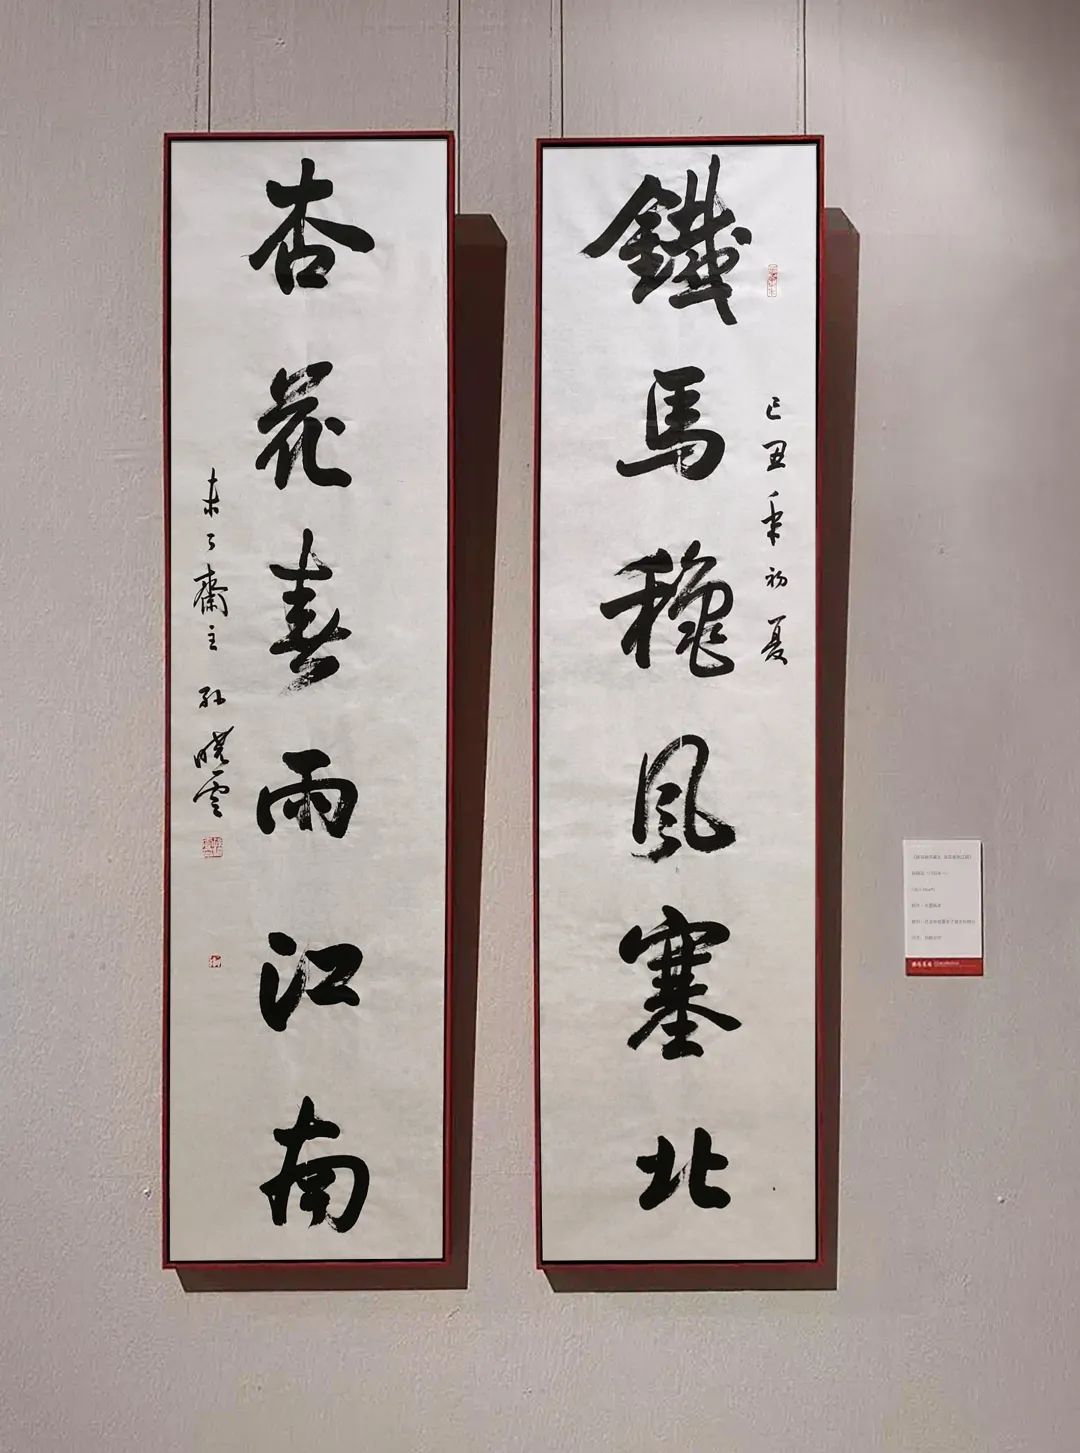 鐵馬穐風塞北
己丑年初夏
杏花春雨江南
未了齋主 孫曉雲